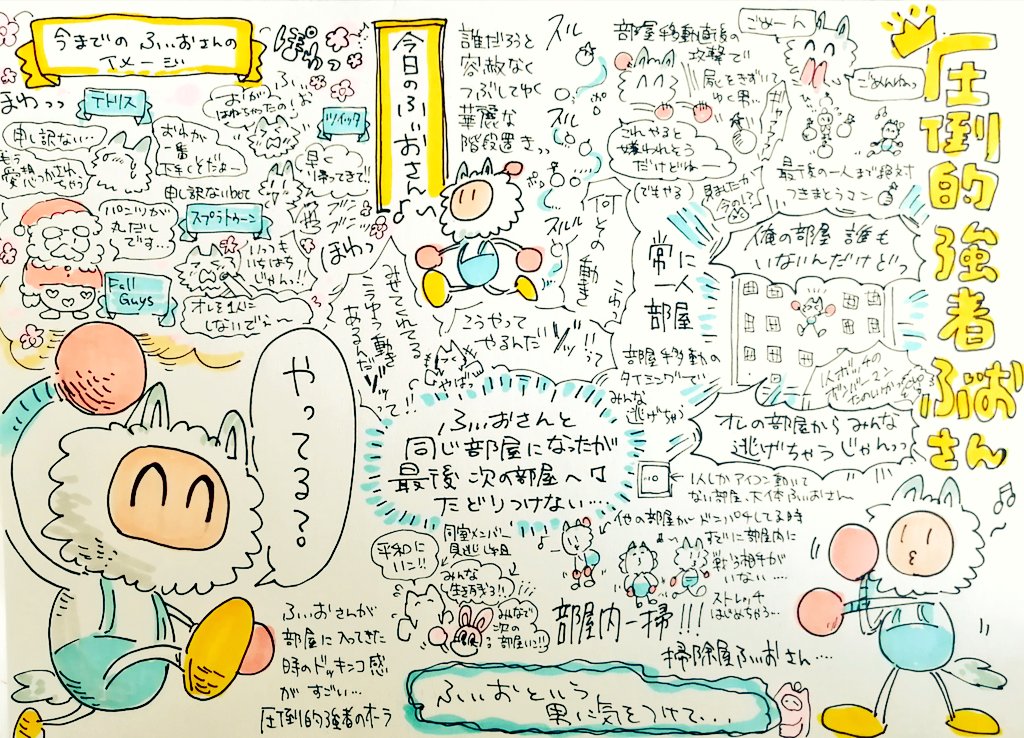 圧倒的強者ふぃおさん
今までの ふぃおさんの
イメージ
ぽわっ
ほわっっ
テトリス
申し訳ない…
もう
愛想つかされ
ちゃう
オレが
一番
下手くそだよー
ツイッタ
早く
帰ってきて!!
申し訳ないbot
スプラトゥーン
いつも
いちばち
じゃん!!
オレを1人に
しないで〜
パンツが
丸だし
です…
Fall
Guys
ほわっ
今日のふぃおさん
誰だろうと
容赦なく
つぶしてゆく
華麗な
階段置き
スル
スル
スルル
何その動き
こわっ
こうやって
やるんだ
みせてくれてる
こうゆう動き
あるんだ
って!!
やばっ
部屋移動直後の
攻撃で
屍をきずいて
ゆく男…
ごめーん
ごめんねっ
これやると
嫌われそう
だけどねー
(でもやる)
見ましたか
今の
最後の一人まで絶対
つきまとうマン
常に
一人
部屋
俺の部屋 誰も
いないんだけどっ
部屋移動の
タイミングで
みんな
逃げちゃう
1人ボッチの
ボンバーマン
オレの部屋からみんな
逃げちゃうじゃんっっ
1人しかアイコン動いて
ない部屋、大体ふぃおさん
ふぃおさんと
同じ部屋になったが
最後 次の部屋へは
たどりつけない…
他の部屋がドンパチしてる時
すでに部屋内に
戦う相手が
いない…
ストレッチ
はじめちゃう…
部屋内一掃!!!
掃除屋ふぃおさん…
同室メンバー
見逃し組
平和に
イン!!
みんな
生き残ろう!!
みんなで
次の
部屋いこ!!
やってる?
ふぃおさんが
部屋に入ってきた
時のドッキンコ感
がすごい…
圧倒的強者のオーラ
ふぃおという
男に気をつけて…